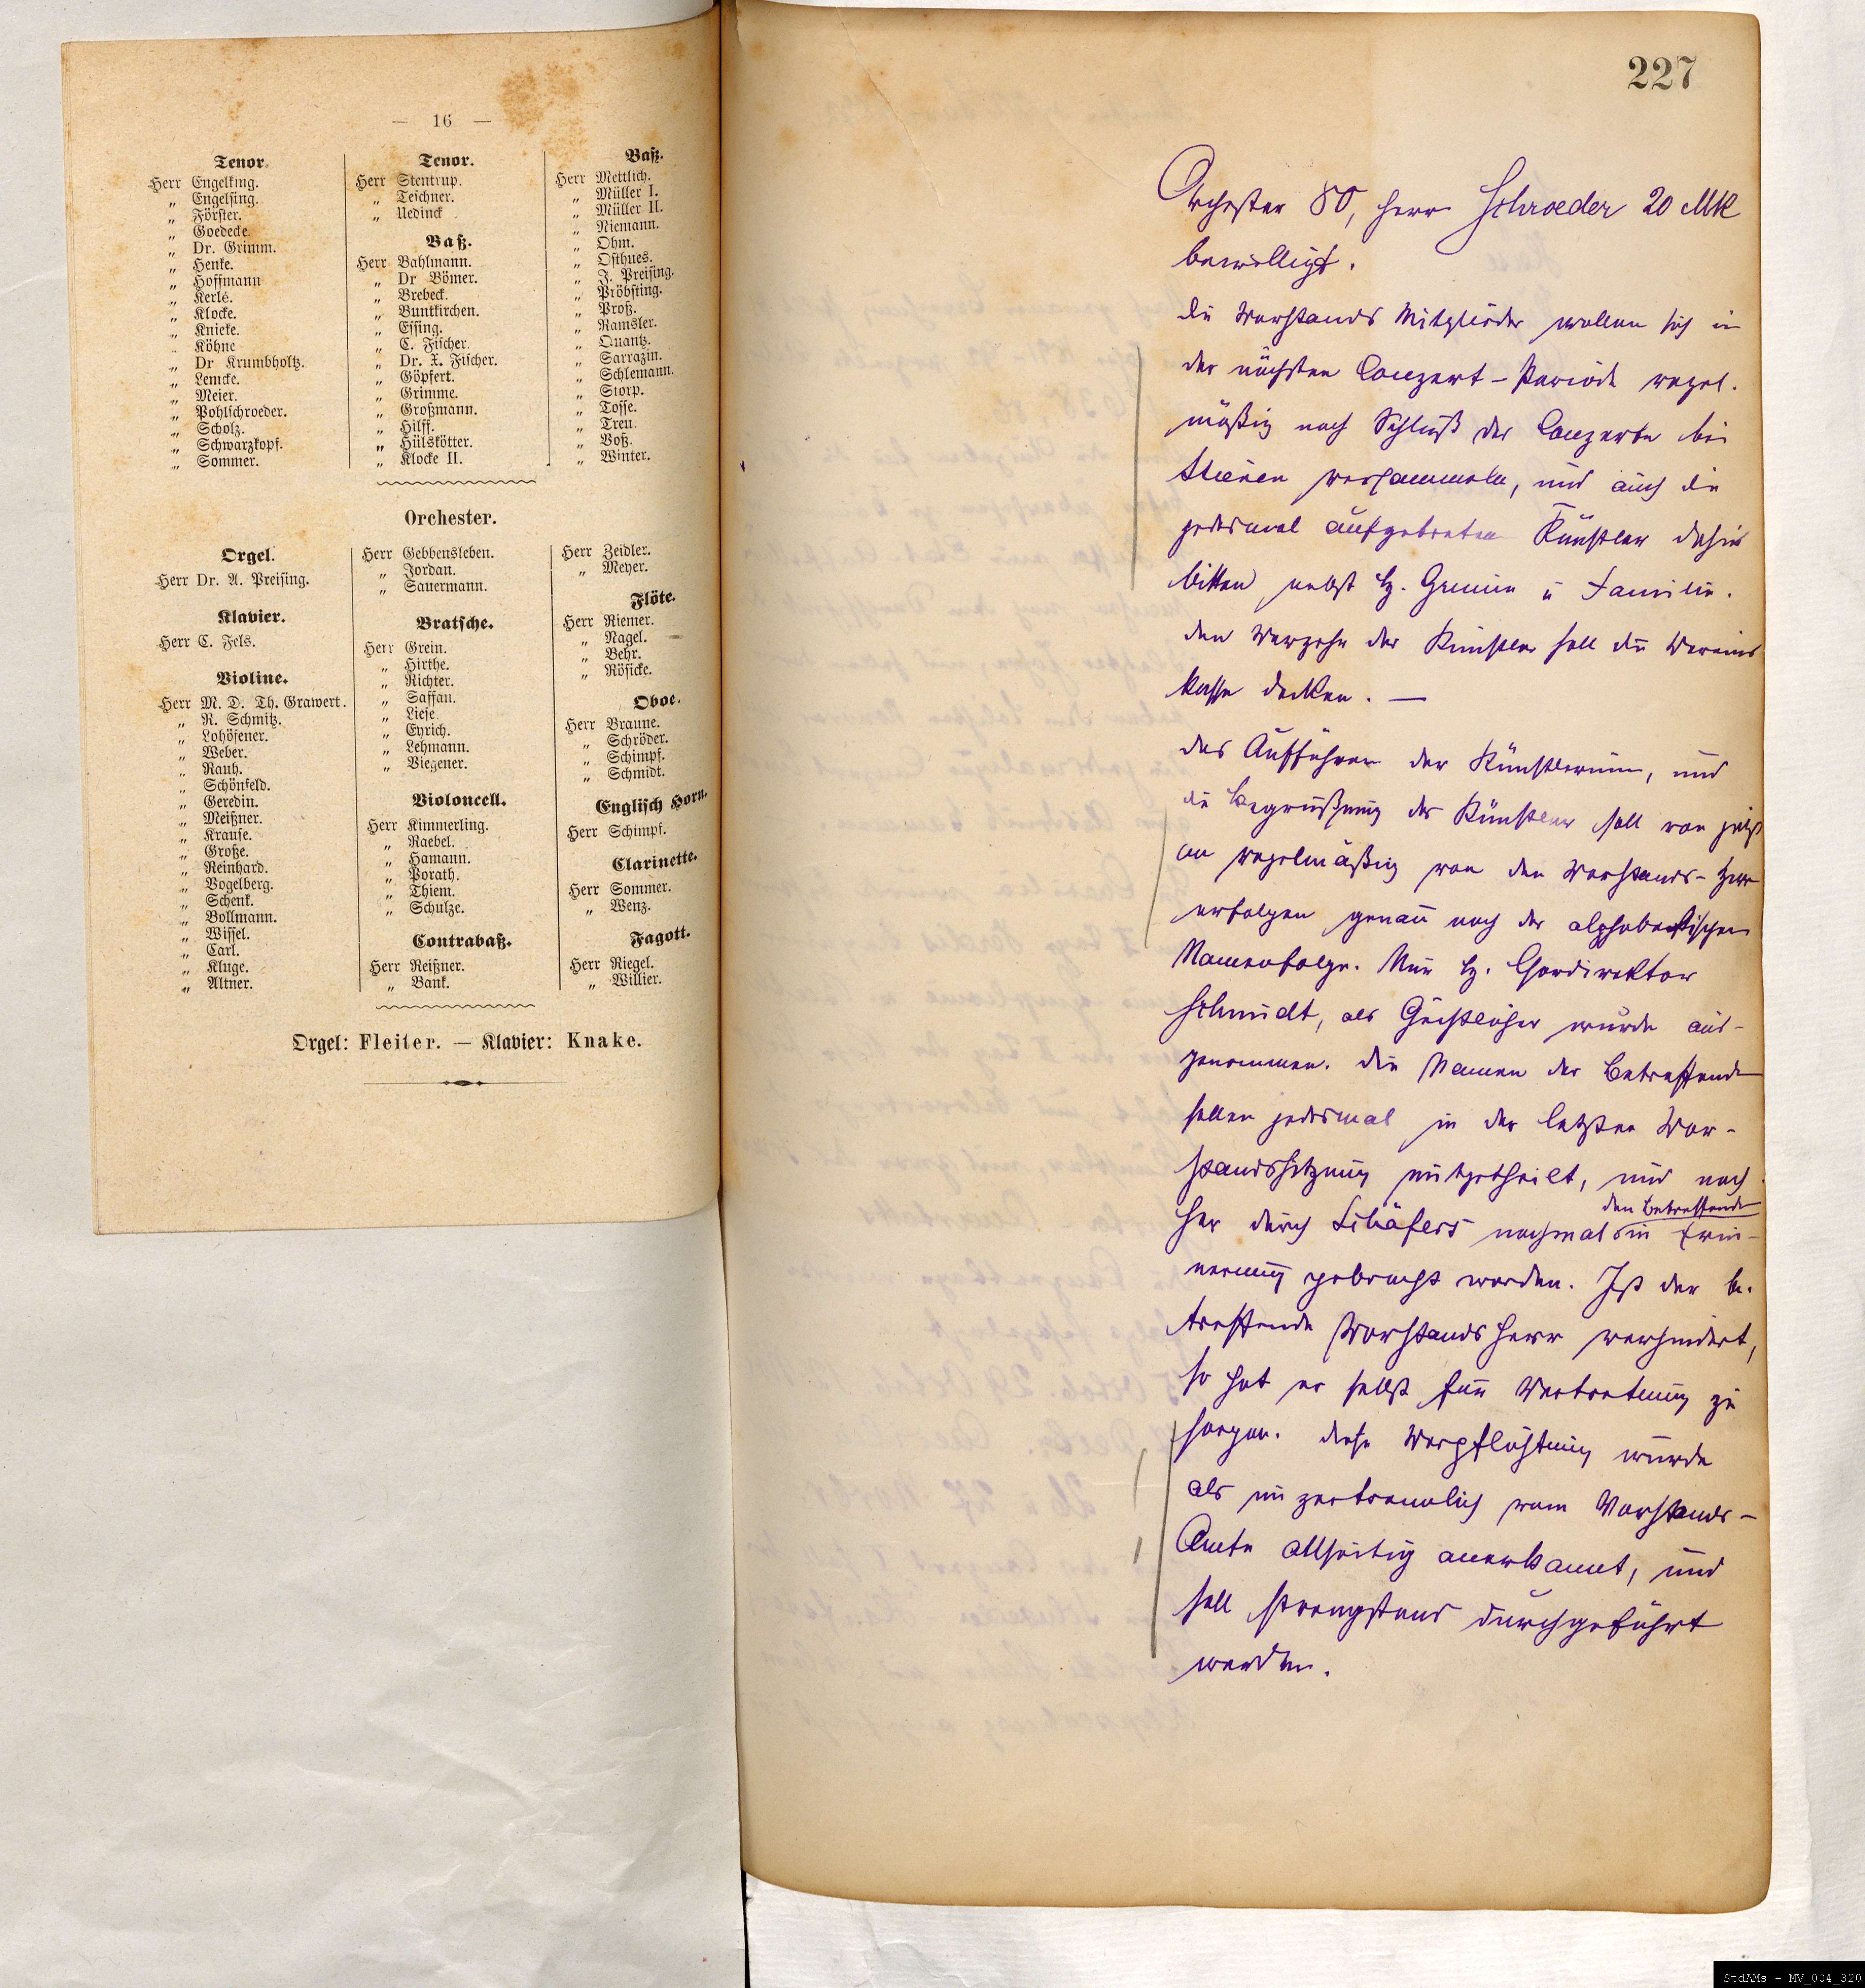 — 16 —
Tenor.
Herr Engelking.
„ Engelsing.
„ Förster.
„ Goedecke.
„ Dr. Grimm.
„ Henke.
„ Hoffmann
„ Kerlé.
„ Klocke.
„ Knieke.
„ Köhne
„ Dr Krumbholtz.
„ Lemcke.
„ Meier.
„ Pohlschroeder.
„ Scholz.
„ Schwarzkopf.
„ Sommer.
Tenor.
Herr Stentrup.
„ Teschner.
„ Uedinck
Baß.
Herr Bahlmann.
„ Dr Bömer.
„ Brebeck.
„ Buntkirchen.
„ Essing.
„ C. Fischer.
„ Dr. X. Fischer.
„ Göpfert.
„ Grimme.
„ Großmann.
„ Hilff.
„ Hülskötter.
„ Klocke II.
Baß.
Herr Mettlich.
„ Müller I.
„ Müller II.
„ Niemann.
„ Ohm.
„ Osthues.
„ J. Preising.
„ Pröbsting.
„ Proß.
„ Ramsler.
„ Quantz.
„ Sarrazin.
„ Schlemann.
„ Storp.
„ Tosse.
„ Treu.
„ Voß.
„ Winter.
Orchester.
Orgel.
Herr Dr. A. Preising.
Klavier.
Herr C. Fels.
Violine.
Herr M. D. Th. Grawert.
„ R. Schmitz.
„ Lohöfener.
„ Weber.
„ Rauh.
„ Schönfeld.
„ Geredin.
„ Meißner.
„ Krause.
„ Große.
„ Reinhard.
„ Vogelberg.
„ Schenk.
„ Vollmann.
„ Wissel.
„ Carl.
„ Kluge.
„ Altner.
Herr Gebbensleben.
„ Jordan.
„ Sauermann.
Bratsche.
Herr Grein.
„ Hirthe.
„ Richter.
„ Saffau.
„ Liese
„ Eyrich.
„ Lehmann.
„ Viegener.
Violoncell.
Herr Kimmerling.
„ Raebel.
„ Hamann.
„ Porath.
„ Thiem.
„ Schulze.
Contrabaß.
Herr Reißner.
„ Bank.
Herr Zeidler.
„ Meyer.
Flöte.
Herr Riemer.
„ Nagel.
„ Behr.
„ Rösicke.
Oboe.
Herr Braune.
„ Schröder.
„ Schimpf.
„ Schmidt.
Englisch Horn.
Herr Schimpf.
Clarinette.
Herr Sommer.
„ Wenz.
Fagott.
Herr Riegel.
„ Willier.
Orgel: Fleiter. — Klavier: Knake.
227
Orchester 80, Herr Schroeder 20 Mk
bewilligt.
die Vorstands Mitglieder wollen sich in
der nächsten Conzert-Periode regel-
mäßig nach Schluß der Conzerte bei
Stienen versammeln, und auch die
jedesmal aufgetreten Künstler dahin
bitten nebst H. Grimm u Familie.
den Verzehr der Künstler soll die Vereins
kasse decken. —
das Aufführen der Künstlerinn, und
die Begrüßung der Künstler soll von jetzt
an regelmäßig von den Vorstands-Herrn
erfolgen genau nach der alphabetischen
Namenfolge. Nur H. Chordirektor
Schmidt, als Geistlicher wurde aus-
genommen. die Namen der Betreffende
sollen jedesmal in der letzten Vor-
standssitzung mitgetheilt, und nach
her durch Schäfers nochmals den Betreffende in Erin-
nerung gebracht werden. Ist der be-
treffende Vorstands Herr verhindert,
so hat er selbst für Vertretung zu
sorgen. diese Verpflichtung wurde
als unzertrennlich vom Vorstands-
Amte allseitig anerkannt, und
soll strengstens durchgeführt
werden.
StdAMs - MV_004_320